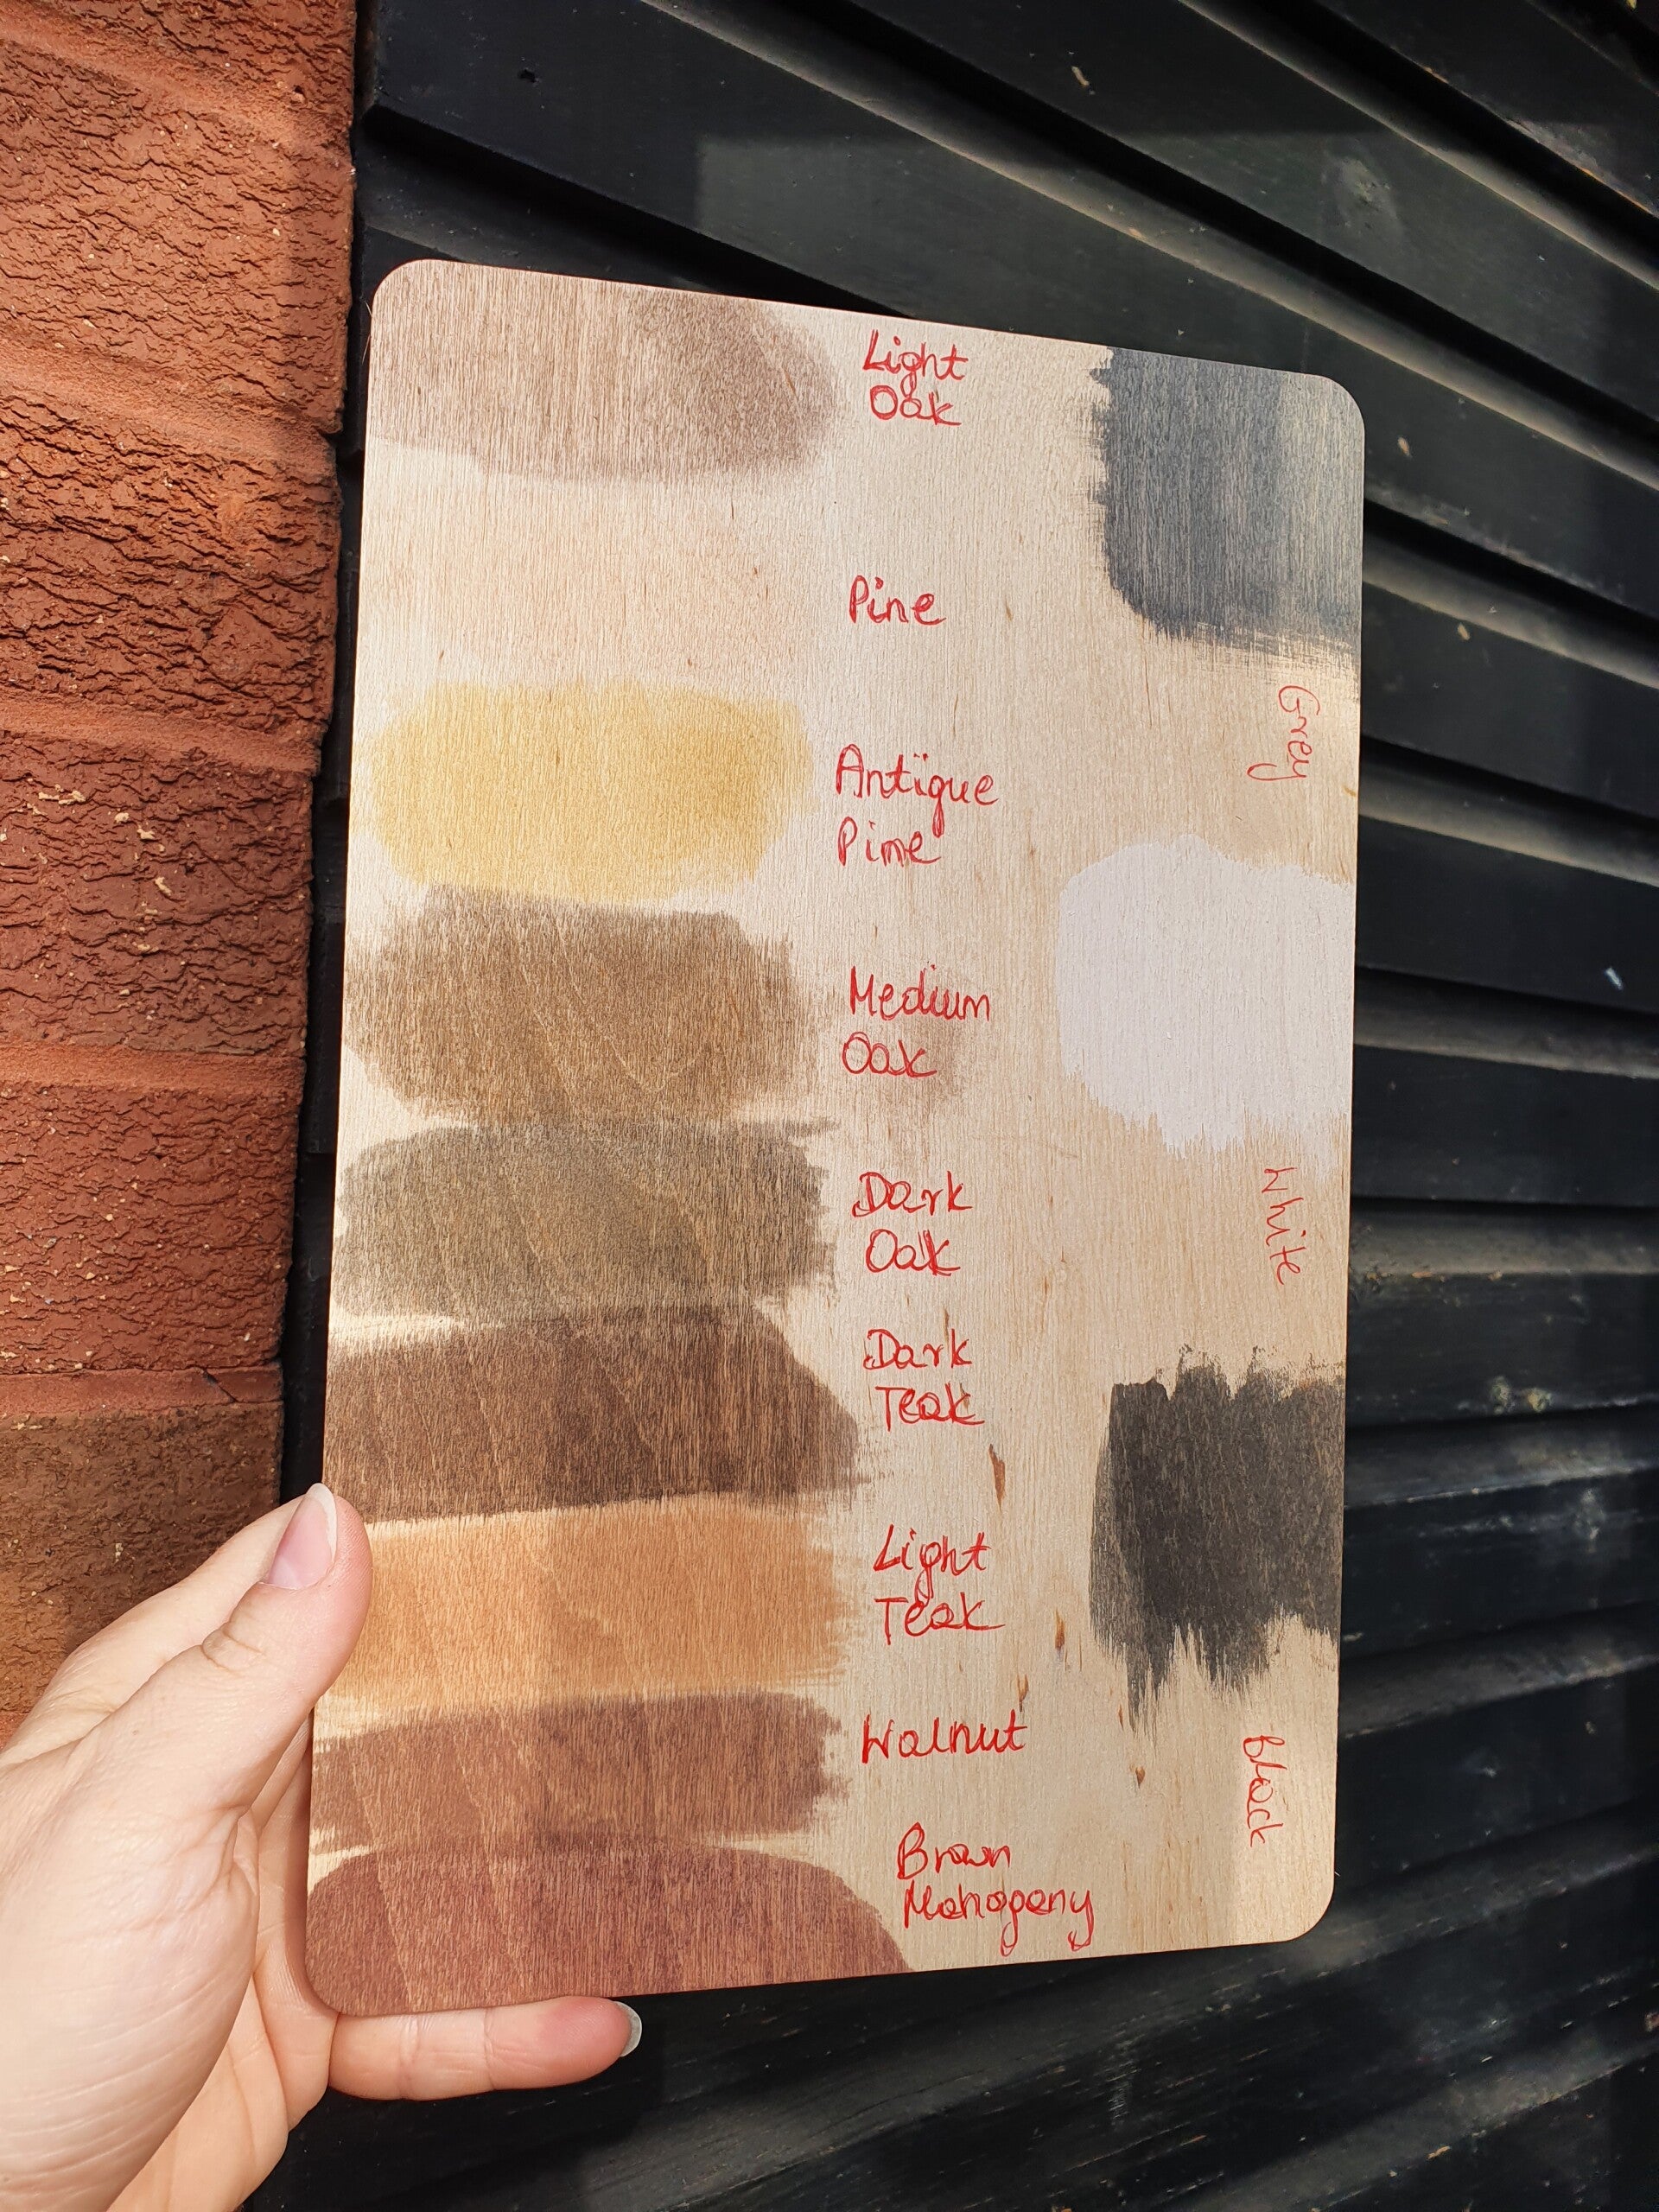 Light
Oak
Pine
Antique
Pine
Medium
Oak
Dark
Oak
Dark
Teak
Light
Teak
Walnut
Brown
Mahogany
Grey
White
Black